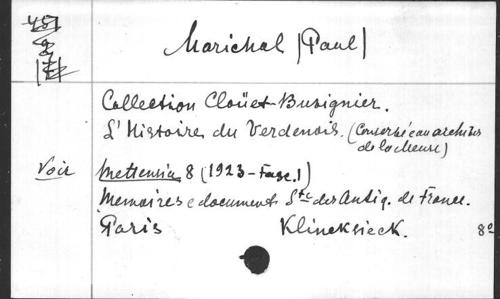 Marichal (Paul)
Collection Cloüet-Buvignier.
L'Histoire du Verdunois. (Conservée aux archives
de la Meuse)
Voir Mettensia 8 (1923 - Fasc. 1)
Memoires e documents Sté des Antiq. de France.
Paris Klincksieck. 8º